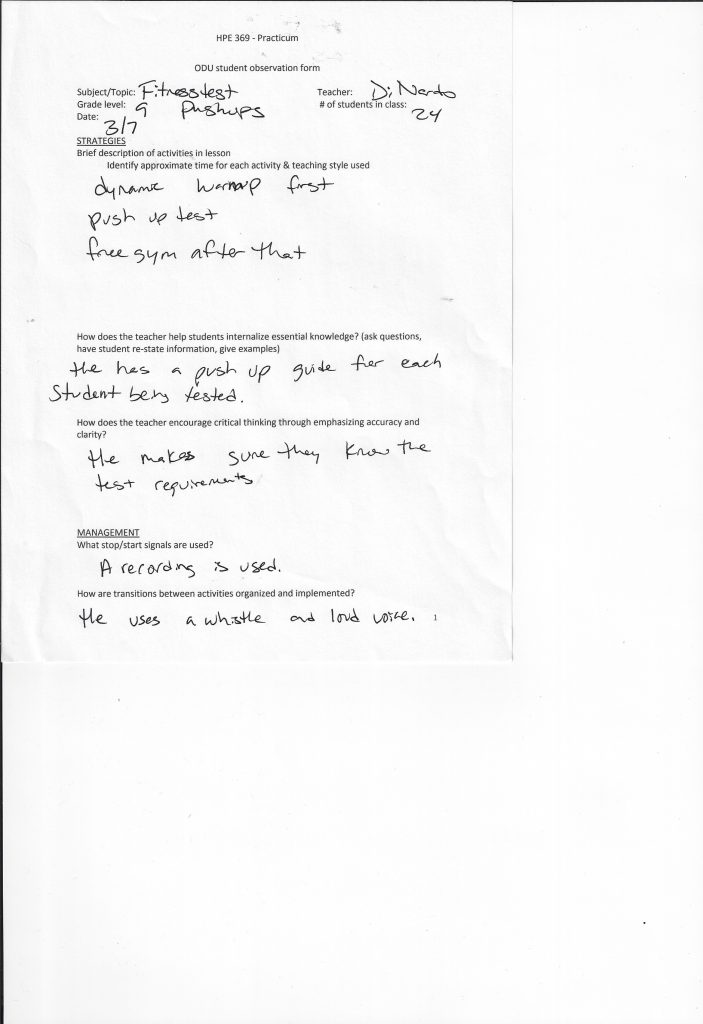 HPE 369 - Practicum
ODU student observation form
Subject/Topic: Fitness test Teacher: Di Nardo
Grade level: 9 Pushups # of students in class: 24
Date: 3/7
STRATEGIES
Brief description of activities in lesson
Identify approximate time for each activity & teaching style used
dynamic warmup first
push up test
free gym after that
How does the teacher help students internalize essential knowledge? (ask questions,
have student re-state information, give examples)
He has a push up guide for each
Student being tested.
How does the teacher encourage critical thinking through emphasizing accuracy and
clarity?
He makes sure they know the
test requirements
MANAGEMENT
What stop/start signals are used?
A recording is used.
How are transitions between activities organized and implemented?
He uses a whistle and loud voice. 1